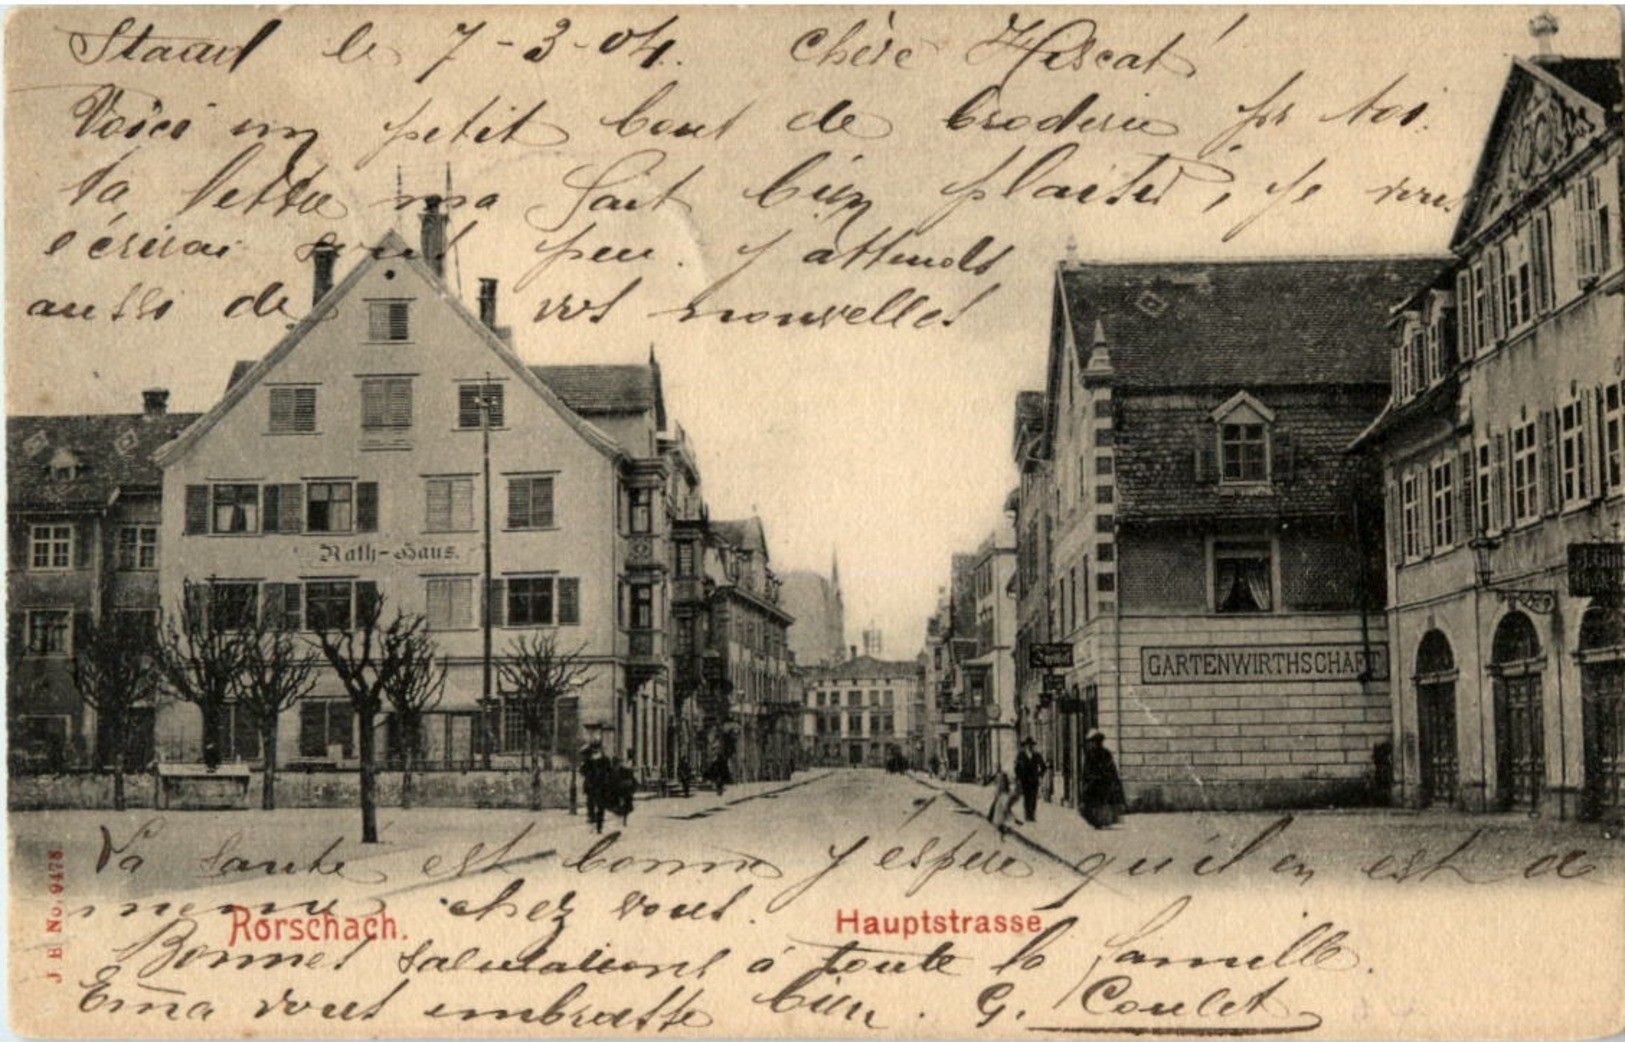 Staad le 7-3-04. Chère
Voici un petit bout de broderie pr toi.
ta lettre ma fait bien plaisir, je vous
écrirai sous peu. j'attends
aussi de vos nouvelles
Rath-Haus.
GARTENWIRTHSCHAFT
La santé est bonne j'espère qu'il en est de
meme chez vous.
Rorschach. Hauptstrasse
J B No. 9478
Bonnes salutations à toute la famille.
Ema vous embrasse bien. G. Coulet